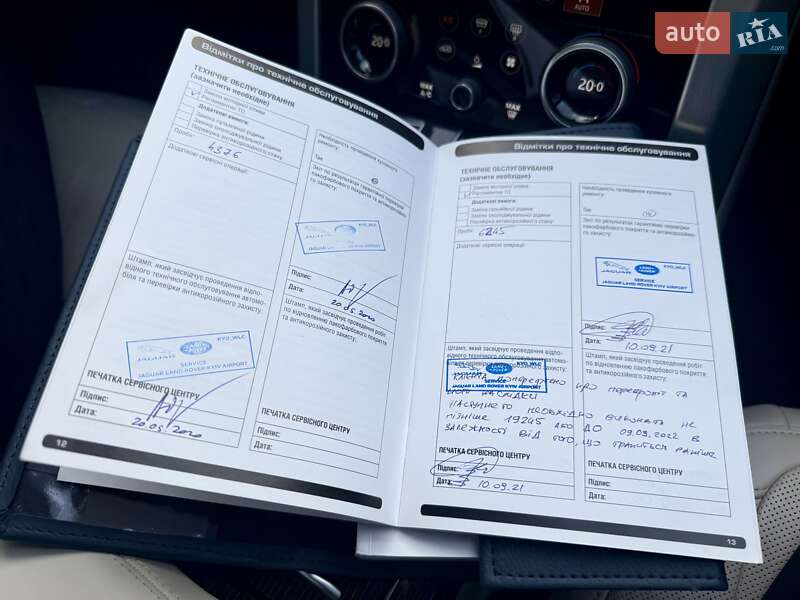 auto RIA
20·0
AUTO
MAX A/C
MAX
20·0
Відмітки про технічне обслуговування
ТЕХНІЧНЕ ОБСЛУГОВУВАННЯ
(зазначити необхідне)
Заміна моторної оливи
Регламентне ТО
Додаткові вимоги:
Заміна гальмівної рідини
Заміна охолоджувальної рідини
Перевірка антикорозійного стану
Пробіг: 4376
Додаткові сервісні операції:
Штамп, який засвідчує проведення відпо-
відного технічного обслуговування автомо-
біля та перевірки антикорозійного захисту:
KYD_WLC
JAGUAR
LAND ROVER
SERVICE
JAGUAR LAND ROVER KYIV AIRPORT
ПЕЧАТКА СЕРВІСНОГО ЦЕНТРУ
Підпис:
Дата: 20.05.2020
12
Необхідність проведення кузовного
ремонту:
Так
Звіт по результатам гарантійної перевірки
лакофарбового покриття та антикорозійно-
го захисту:
KYD_WLC
JAGUAR LAND ROVER KYIV AIRPORT
Підпис:
Дата: 20.05.2020
Штамп, який засвідчує проведення робіт
по відновленню лакофарбового покриття
та антикорозійного захисту:
ПЕЧАТКА СЕРВІСНОГО ЦЕНТРУ
Підпис:
Дата:
Відмітки про технічне обслуговування
ТЕХНІЧНЕ ОБСЛУГОВУВАННЯ
(зазначити необхідне)
Заміна моторної оливи
Регламентне ТО
Додаткові вимоги:
Заміна гальмівної рідини
Заміна охолоджувальної рідини
Перевірка антикорозійного стану
Пробіг: 6245
Додаткові сервісні операції:
Штамп, який засвідчує проведення відпо-
відного технічного обслуговування автомо-
біля та перевірки антикорозійного захисту:
LAND ROVER
SERVICE
JAGUAR LAND ROVER KYIV AIRPORT
Клієнта попереджено про перепробіг та
його наслідки
Наступне ТО необхідно виконати не
пізніше 19245 або до 09.09.2022 в
залежності від того, що трапиться раніше
ПЕЧАТКА СЕРВІСНОГО ЦЕНТРУ
Підпис:
Дата: 10.09.21
Необхідність проведення кузовного
ремонту:
Так
Звіт по результатам гарантійної перевірки
лакофарбового покриття та антикорозійно-
го захисту:
KYD_WLC
JAGUAR
LAND ROVER
SERVICE
JAGUAR LAND ROVER KYIV AIRPORT
Підпис:
Дата: 10.09.21
Штамп, який засвідчує проведення робіт
по відновленню лакофарбового покриття
та антикорозійного захисту:
ПЕЧАТКА СЕРВІСНОГО ЦЕНТРУ
Підпис:
Дата:
13